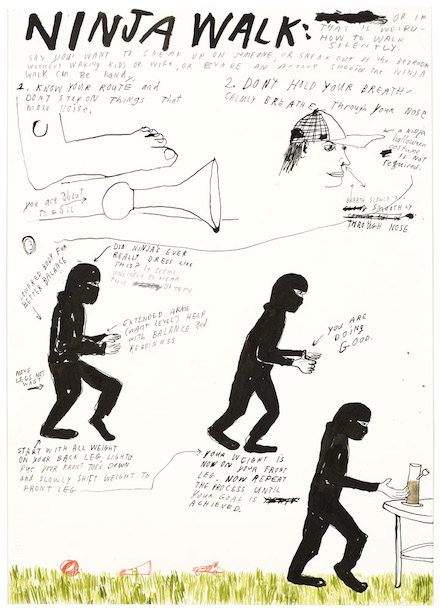 NINJA WALK:
OR IF
THAT IS WEIRD-
HOW TO WALK
SILENTLY.
SAY YOU WANT TO SNEAK UP ON SOMEONE OR SNEAK OUT OF the BEDROOM
WITHOUT WAKING KIDS OR WIFE, OR EVADE AN ACTIVE SHOOTER THE NINJA
WALK CAN BE handy.
1. KNOW YOUR ROUTE and
DON'T STEP ON THINGS THAT
MAKE NOISE.
2. DON'T HOLD YOUR BREATH-
CALMLY BREATHE Through YOUR NOSE
a NINJA
halloween
costume
is Not
required.
YOU are about
TO FAIL
BREATH SLOWLY &
Smoothly
THROUGH NOSE
LOWERED BODY FOR
BETTER BALANCE
DID NINJA'S EVER
REALLY DRESS LIKE
THIS? IT SEEMS
UNLIKELY TO WEAR
THIS
EXTENDED ARMS
(WAIST LEVEL) HELP
WITH BALANCE and
READINESS
YOU ARE
DOING
GOOD.
START WITH ALL WEIGHT
ON YOUR BACK LEG. LIGHTLY
PUT YOUR FRONT TOES DOWN
and SLOWLY SHIFT WEIGHT TO
FRONT LEG
YOUR WEIGHT IS
NOW ON YOUR FRONT
LEG. NOW REPEAT
THE PROCESS UNTIL
YOUR GOAL IS
ACHIEVED.